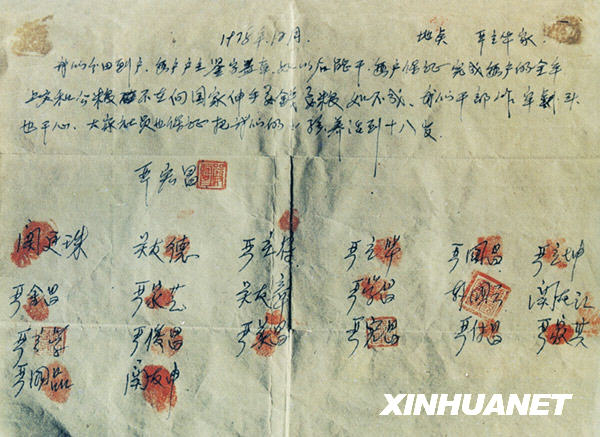 1978年12月. 地点 严立华家.
我们分田到户,每户户主签字盖章,如以后能干,每户保证完成每户的全年
上交和公粮 不在向国家伸手要钱要粮,如不成,我们干部作牢剎头
也干心,大家社员也保证把我们的小孩养活到十八岁.
严宏昌
関廷珠 关友德 严立符 严立华 严国昌 严立坤
严金昌 严家芝 关友章 严学昌 韩国云 関友江
严立学 严俊昌 严美昌 严宏昌 严付昌 严家其
严国品 関友申
XINHUANET